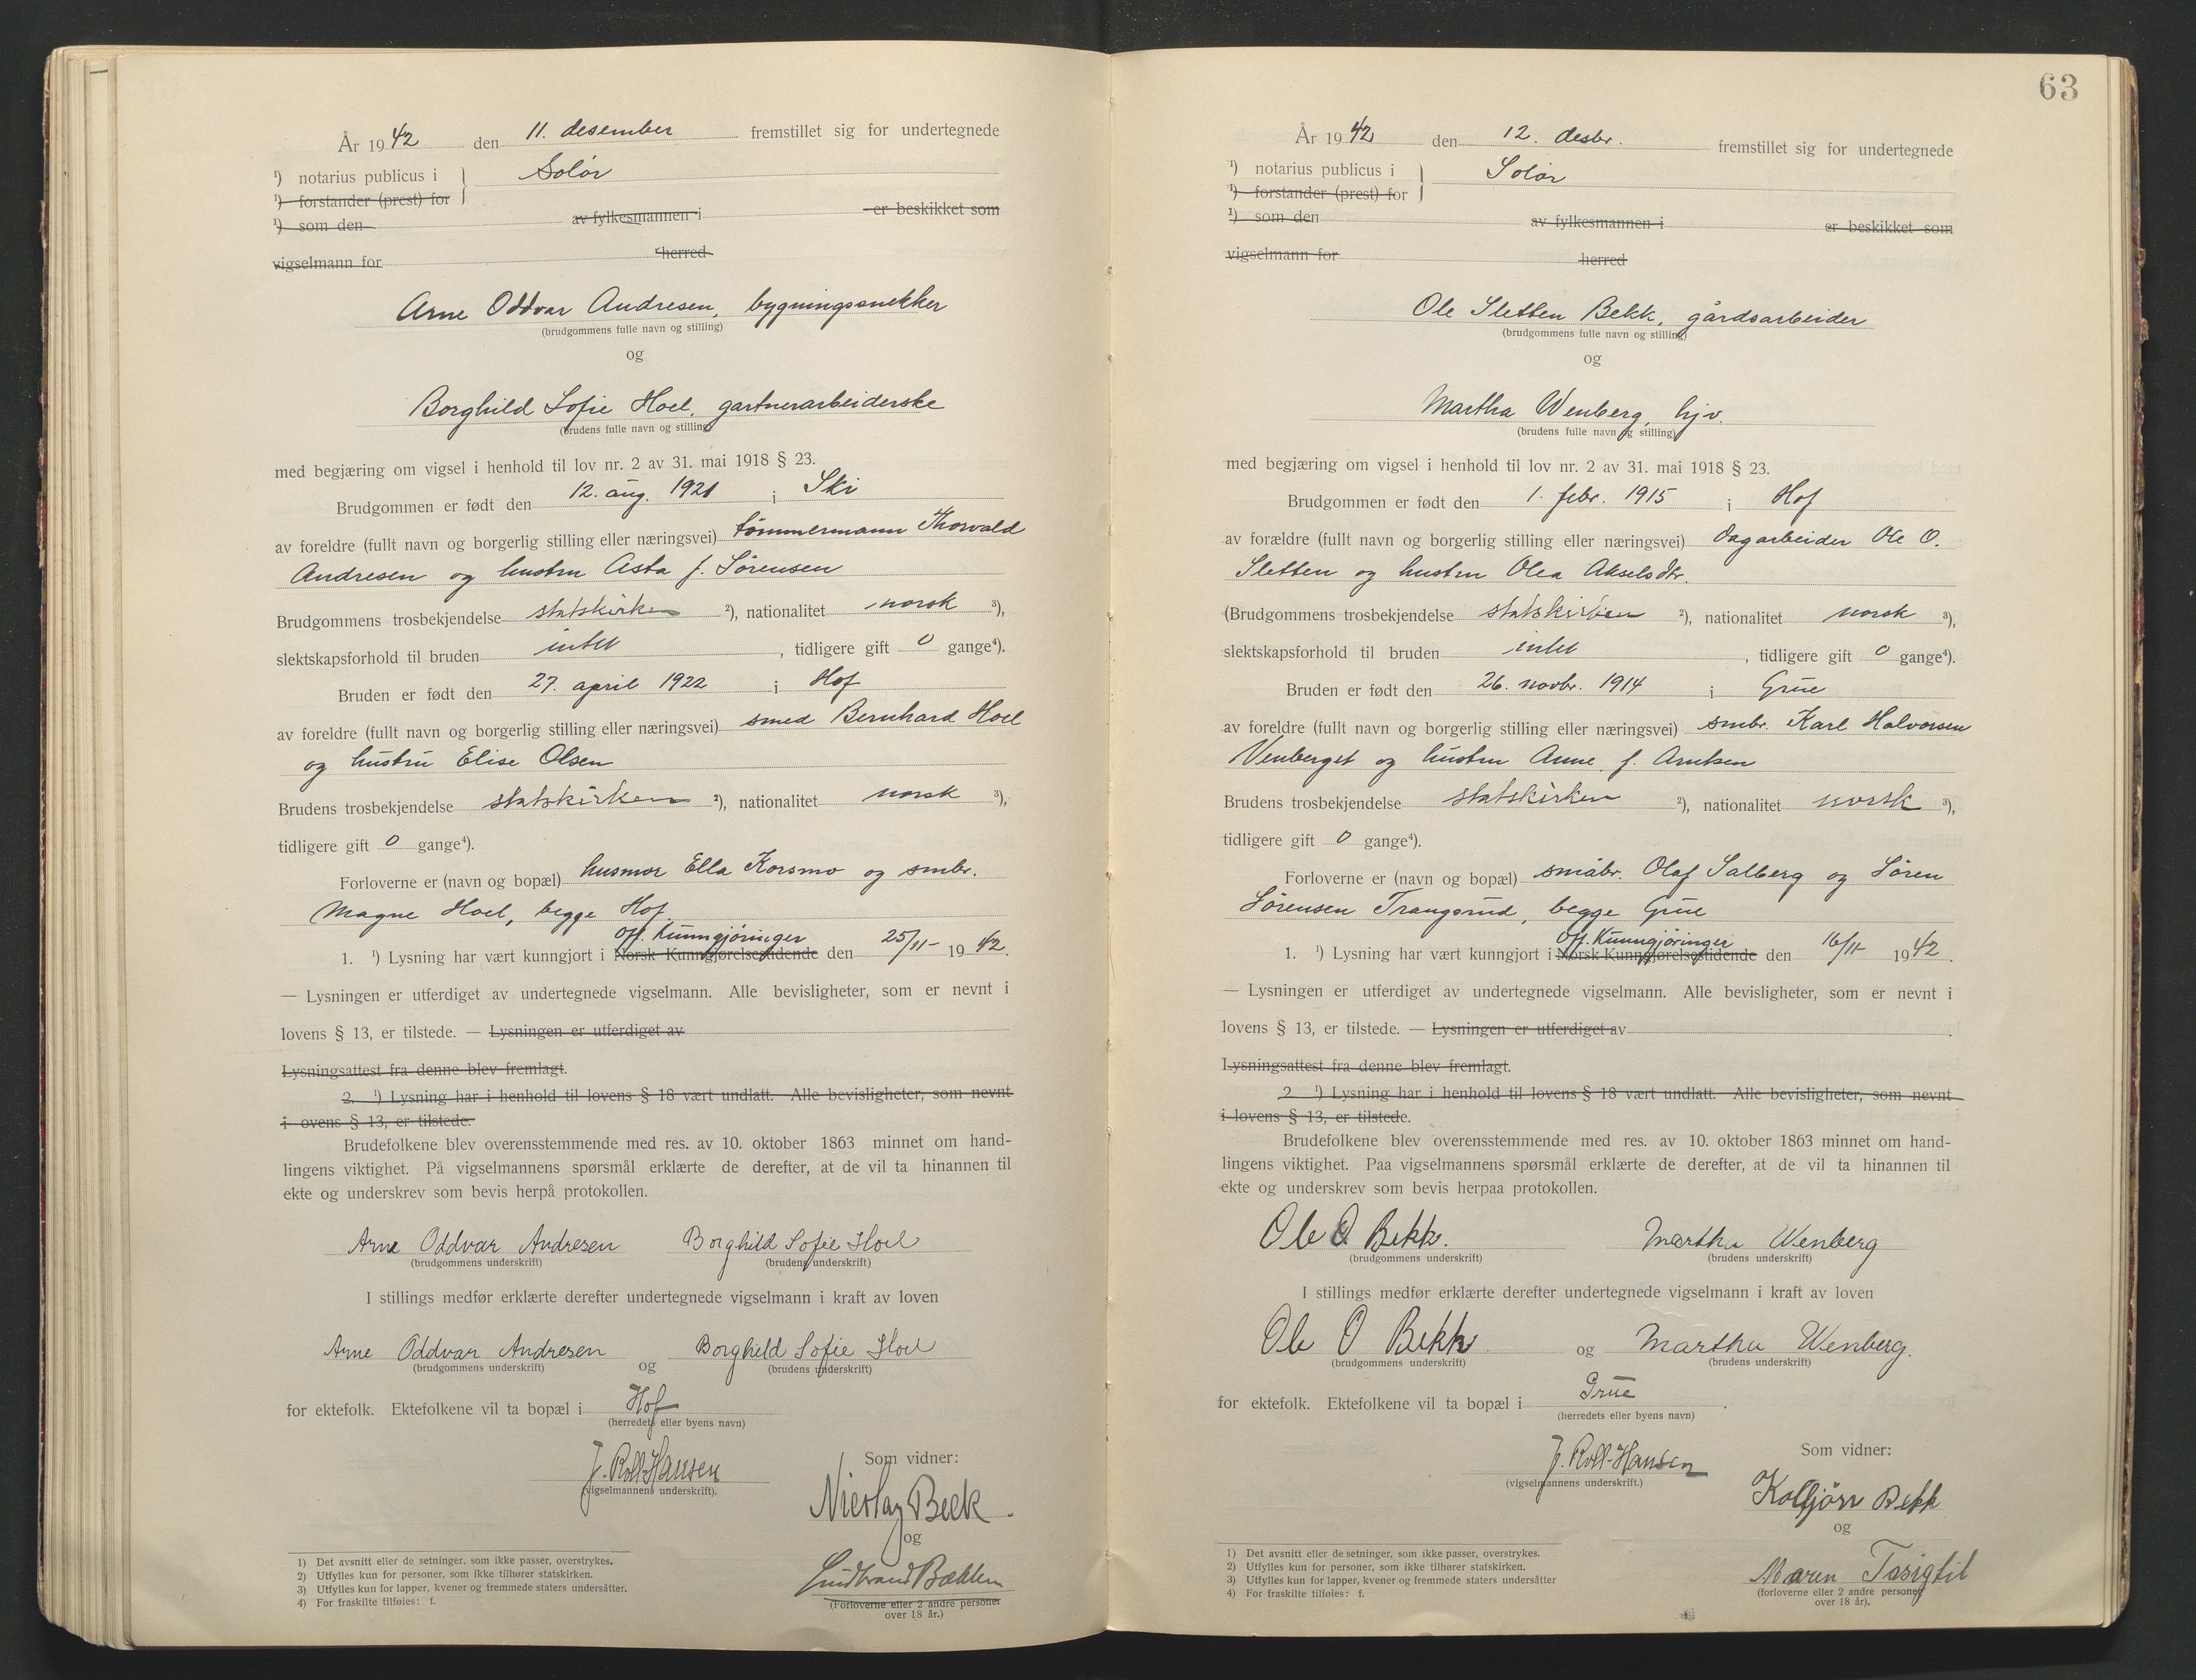 År 1942 den 11. desember fremstillet sig for undertegnede
¹) notarius publicus i } Solør
¹) forstander (prest) for
¹) som den av fylkesmannen i er beskikket som
vigselmann for herred
Arne Oddvar Andresen, bygningssnekker
(brudgommens fulle navn og stilling)
og
Borghild Sofie Hoel, gartnerarbeiderske
(brudens fulle navn og stilling)
med begjæring om vigsel i henhold til lov nr. 2 av 31. mai 1918 § 23.
Brudgommen er født den 12. aug. 1921 i Ski
av foreldre (fullt navn og borgerlig stilling eller næringsvei) tømmermann Thorvald
Andresen og hustru Asta f. Sørensen
Brudgommens trosbekjendelse statskirken ²), nationalitet norsk ³),
slektskapsforhold til bruden intet, tidligere gift 0 gange⁴).
Bruden er født den 27. april 1922 i Hof
av foreldre (fullt navn og borgerlig stilling eller næringsvei) smed Bernhard Hoel
og hustru Elise Olsen
Brudens trosbekjendelse statskirken ²), nationalitet norsk ³),
tidligere gift 0 gange⁴).
Forloverne er (navn og bopæl) husmor Ella Korsmo og smbr.
Magne Hoel, begge Hof.
off. kunngjøringer
1. ¹) Lysning har vært kunngjort i Norsk Kunngjørelsestidende den 25/11- 1942.
— Lysningen er utferdiget av undertegnede vigselmann. Alle bevisligheter, som er nevnt i
lovens § 13, er tilstede. — Lysningen er utferdiget av
Lysningsattest fra denne blev fremlagt.
2. ¹) Lysning har i henhold til lovens § 18 vært undlatt. Alle bevisligheter, som nevnt
i ovens § 13, er tilstede.
Brudefolkene blev overensstemmende med res. av 10. oktober 1863 minnet om hand-
lingens viktighet. På vigselmannens spørsmål erklærte de derefter, at de vil ta hinannen til
ekte og underskrev som bevis herpå protokollen.
Arne Oddvar Andresen Borghild Sofie Hoel
(brudgommens underskrift) (brudens underskrift)
I stillings medfør erklærte derefter undertegnede vigselmann i kraft av loven
Arne Oddvar Andresen og Borghild Sofie Hoel
(brudgommens underskrift) (brudens underskrift)
for ektefolk. Ektefolkene vil ta bopæl i Hof
(herredets eller byens navn)
J. Roll-Hansen
(vigselmannens underskrift).
Som vidner:
Nicolay Beck.
og
(Forloverne eller 2 andre personer
over 18 år.)
1) Det avsnitt eller de setninger, som ikke passer, overstrykes.
2) Utfylles kun for personer, som ikke tilhører statskirken.
3) Utfylles kun for lapper, kvener og fremmede staters undersåtter.
4) For fraskilte tilføies: f.
63
År 1942 den 12. desbr. fremstillet sig for undertegnede
¹) notarius publicus i } Solør
¹) forstander (prest) for
¹) som den av fylkesmannen i er beskikket som
vigselmann for herred
Ole Sletten Bekk, gårdsarbeider
(brudgommens fulle navn og stilling)
og
Martha Wenberg, hjv.
(brudens fulle navn og stilling)
med begjæring om vigsel i henhold til lov nr. 2 av 31. mai 1918 § 23.
Brudgommen er født den 1. febr. 1915 i Hof
av forældre (fullt navn og borgerlig stilling eller næringsvei) dagarbeider Ole O.
Sletten og hustru Olea Akselsdtr.
(Brudgommens trosbekjendelse statskirken ²), nationalitet norsk ³),
slektskapsforhold til bruden intet, tidligere gift 0 gange⁴).
Bruden er født den 26. novbr. 1914 i Grue
av foreldre (fullt navn og borgerlig stilling eller næringsvei) smbr. Karl Halvorsen
Venberget og hustru Anne f. Arntsen
Brudens trosbekjendelse statskirken ²), nationalitet norsk ³),
tidligere gift 0 gange⁴).
Forloverne er (navn og bopæl) småbr. Olaf Salberg og Søren
Sørensen Trangsrud, begge Grue
Off. Kunngjøringer
1. ¹) Lysning har vært kunngjort i Norsk Kunngjørelsestidende den 16/11- 1942.
— Lysningen er utferdiget av undertegnede vigselmann. Alle bevisligheter, som er nevnt i
lovens § 13, er tilstede. — Lysningen er utferdiget av
Lysningsattest fra denne blev fremlagt.
2 ¹) Lysning har i henhold til lovens § 18 vært undlatt. Alle bevisligheter, som nevnt
i lovens § 13, er tilstede.
Brudefolkene blev overensstemmende med res. av 10. oktober 1863 minnet om hand-
lingens viktighet. Paa vigselmannens spørsmål erklærte de derefter, at de vil ta hinannen til
ekte og underskrev som bevis herpaa protokollen.
Ole O Bekk. Martha Wenberg
(brudgommens underskrift) (brudens underskrift)
I stillings medfør erklærte derefter undertegnede vigselmann i kraft av loven
Ole O Bekk og Martha Wenberg.
(brudgommens underskrift) (brudens underskrift)
for ektefolk. Ektefolkene vil ta bopæl i Grue.
(herredets eller byens navn)
J. Roll-Hansen
(vigselmannens underskrift.)
Som vidner:
Kolbjörn Bekk
og
Maren
(forloverne eller 2 andre personer
over 18 år).
1) Det avsnitt eller de setninger, som ikke passer, overstrykes.
2) Utfylles kun for personer, som ikke tilhører statskirken.
3) Utfylles kun for lapper, kvener og fremmede staters undersåtter
4) For fraskilte tilføies: f.